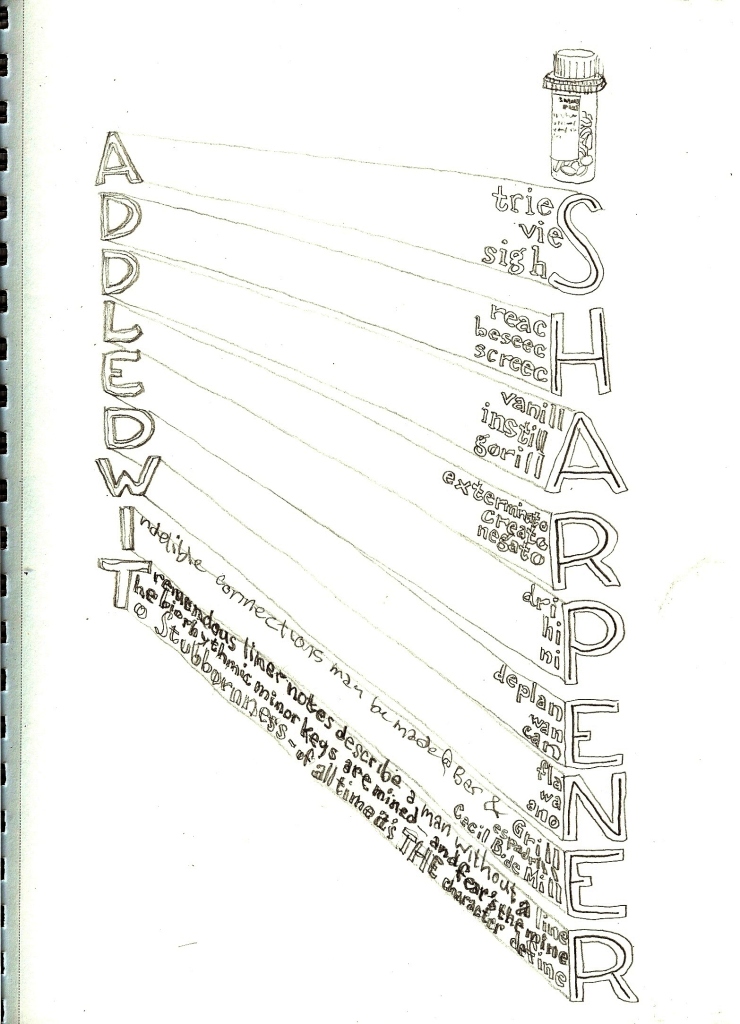 ADDLEDWIT
trie
vie
sigh
S
reac
beseec
screec
H
vanill
instill
gorill
A
exterminato
creato
negato
R
dri
hi
ni
P
deplan
wan
can
E
fla
wa
ano
N
Indelible connections may be made @ Bar & Grill
espadrill
Cecil B. de Mill
E
Tremendous liner notes describe a man without a line
The biorhythmic minor keys are mined - and fear's the mine
To Stubbornness - of all time it's THE character define
R